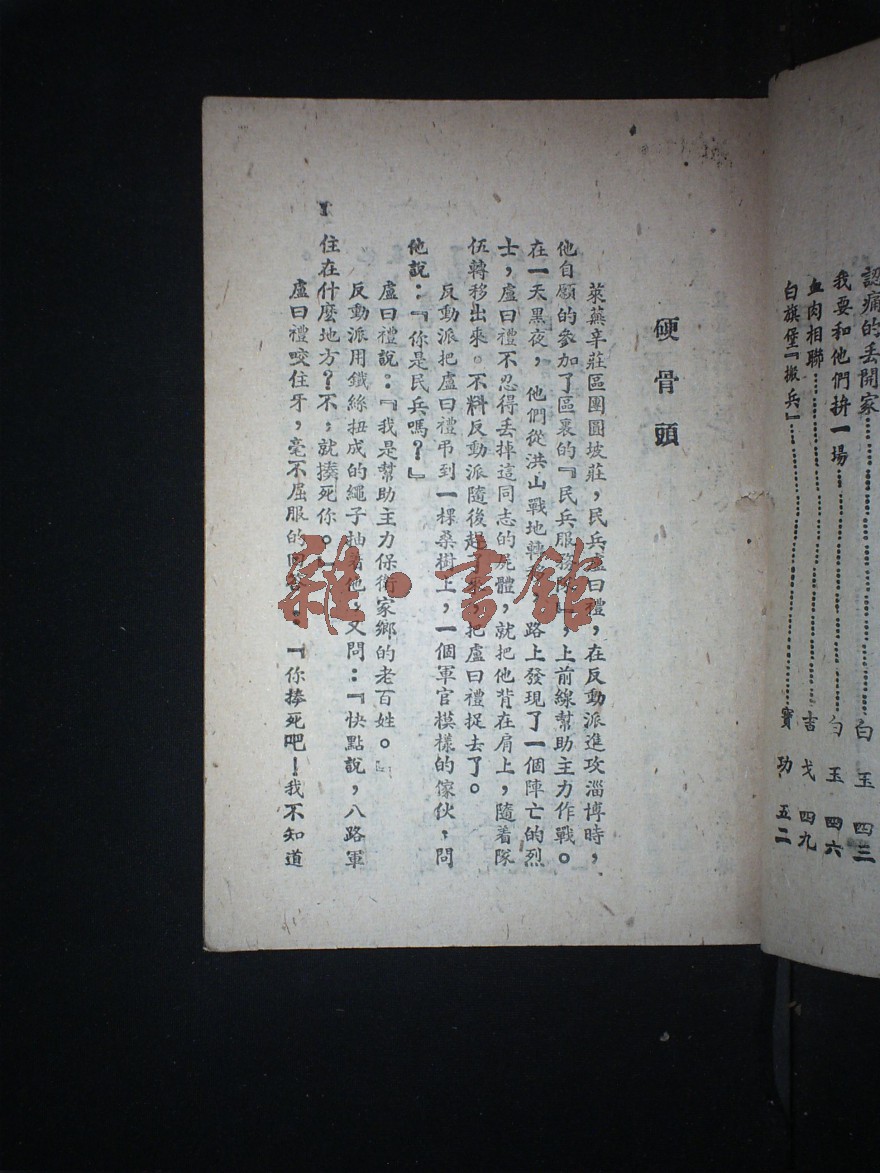 認痛的丢開家……白玉 四三
我要和他們拚一場……白玉 四六
血肉相聯……吉戈 四九
白旗堡『搬兵』……寶功 五二
硬骨頭
萊蕪辛莊區團圓坡莊，民兵盧曰禮，在反動派進攻淄博時，
他自願的參加了區裏的『民兵服務隊』，上前線幫助主力作戰。
在一天黑夜，他們從洪山戰地轉，路上發現了一個陣亡的烈
士，盧曰禮不忍得丢掉這同志的屍體，就把他背在肩上，隨着隊
伍轉移出來。不料反動派隨後趕了來，把盧曰禮捉去了。
反動派把盧曰禮吊到一棵桑樹上，一個軍官模樣的傢伙，問
他說：『你是民兵嗎？』
盧曰禮說：『我是幫助主力保衛家鄉的老百姓。』
反動派用鐵絲扭成的繩子抽着他，又問：『快點說，八路軍
住在什麽地方？不，就揍死你。』
盧曰禮咬住牙，毫不屈服的回答：『你揍死吧！我不知道
1
雜·書館